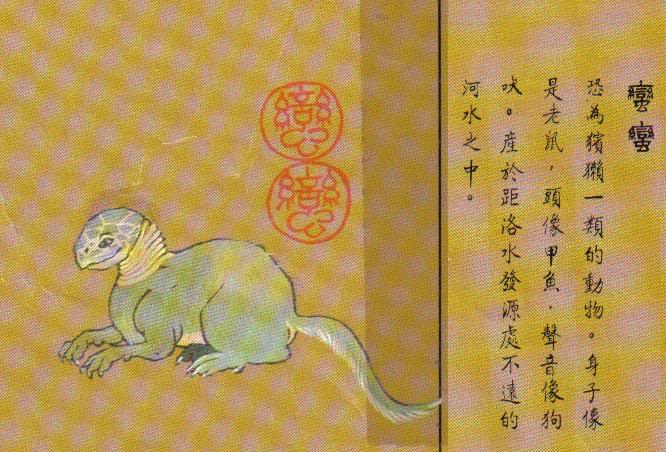 蠻蠻
恐為獱獺一類的動物。身子像
是老鼠，頭像甲魚，聲音像狗
吠。產於距洛水發源處不遠的
河水之中。
蠻
蠻